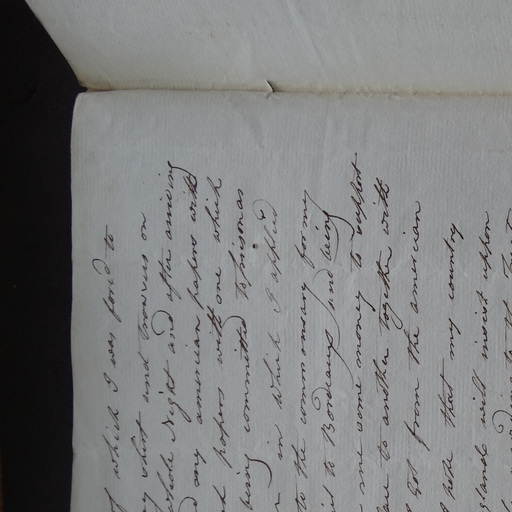 which I was forced to
shirt and trowsers on
whole Night and after ariving
my american papers with
papers with one which
being committed to prison as
in which I applied
to the commonsary for my
to Bordeaux and being
me some money to support
to another together with
Got from the american
hope that my country
will insist upon
to the